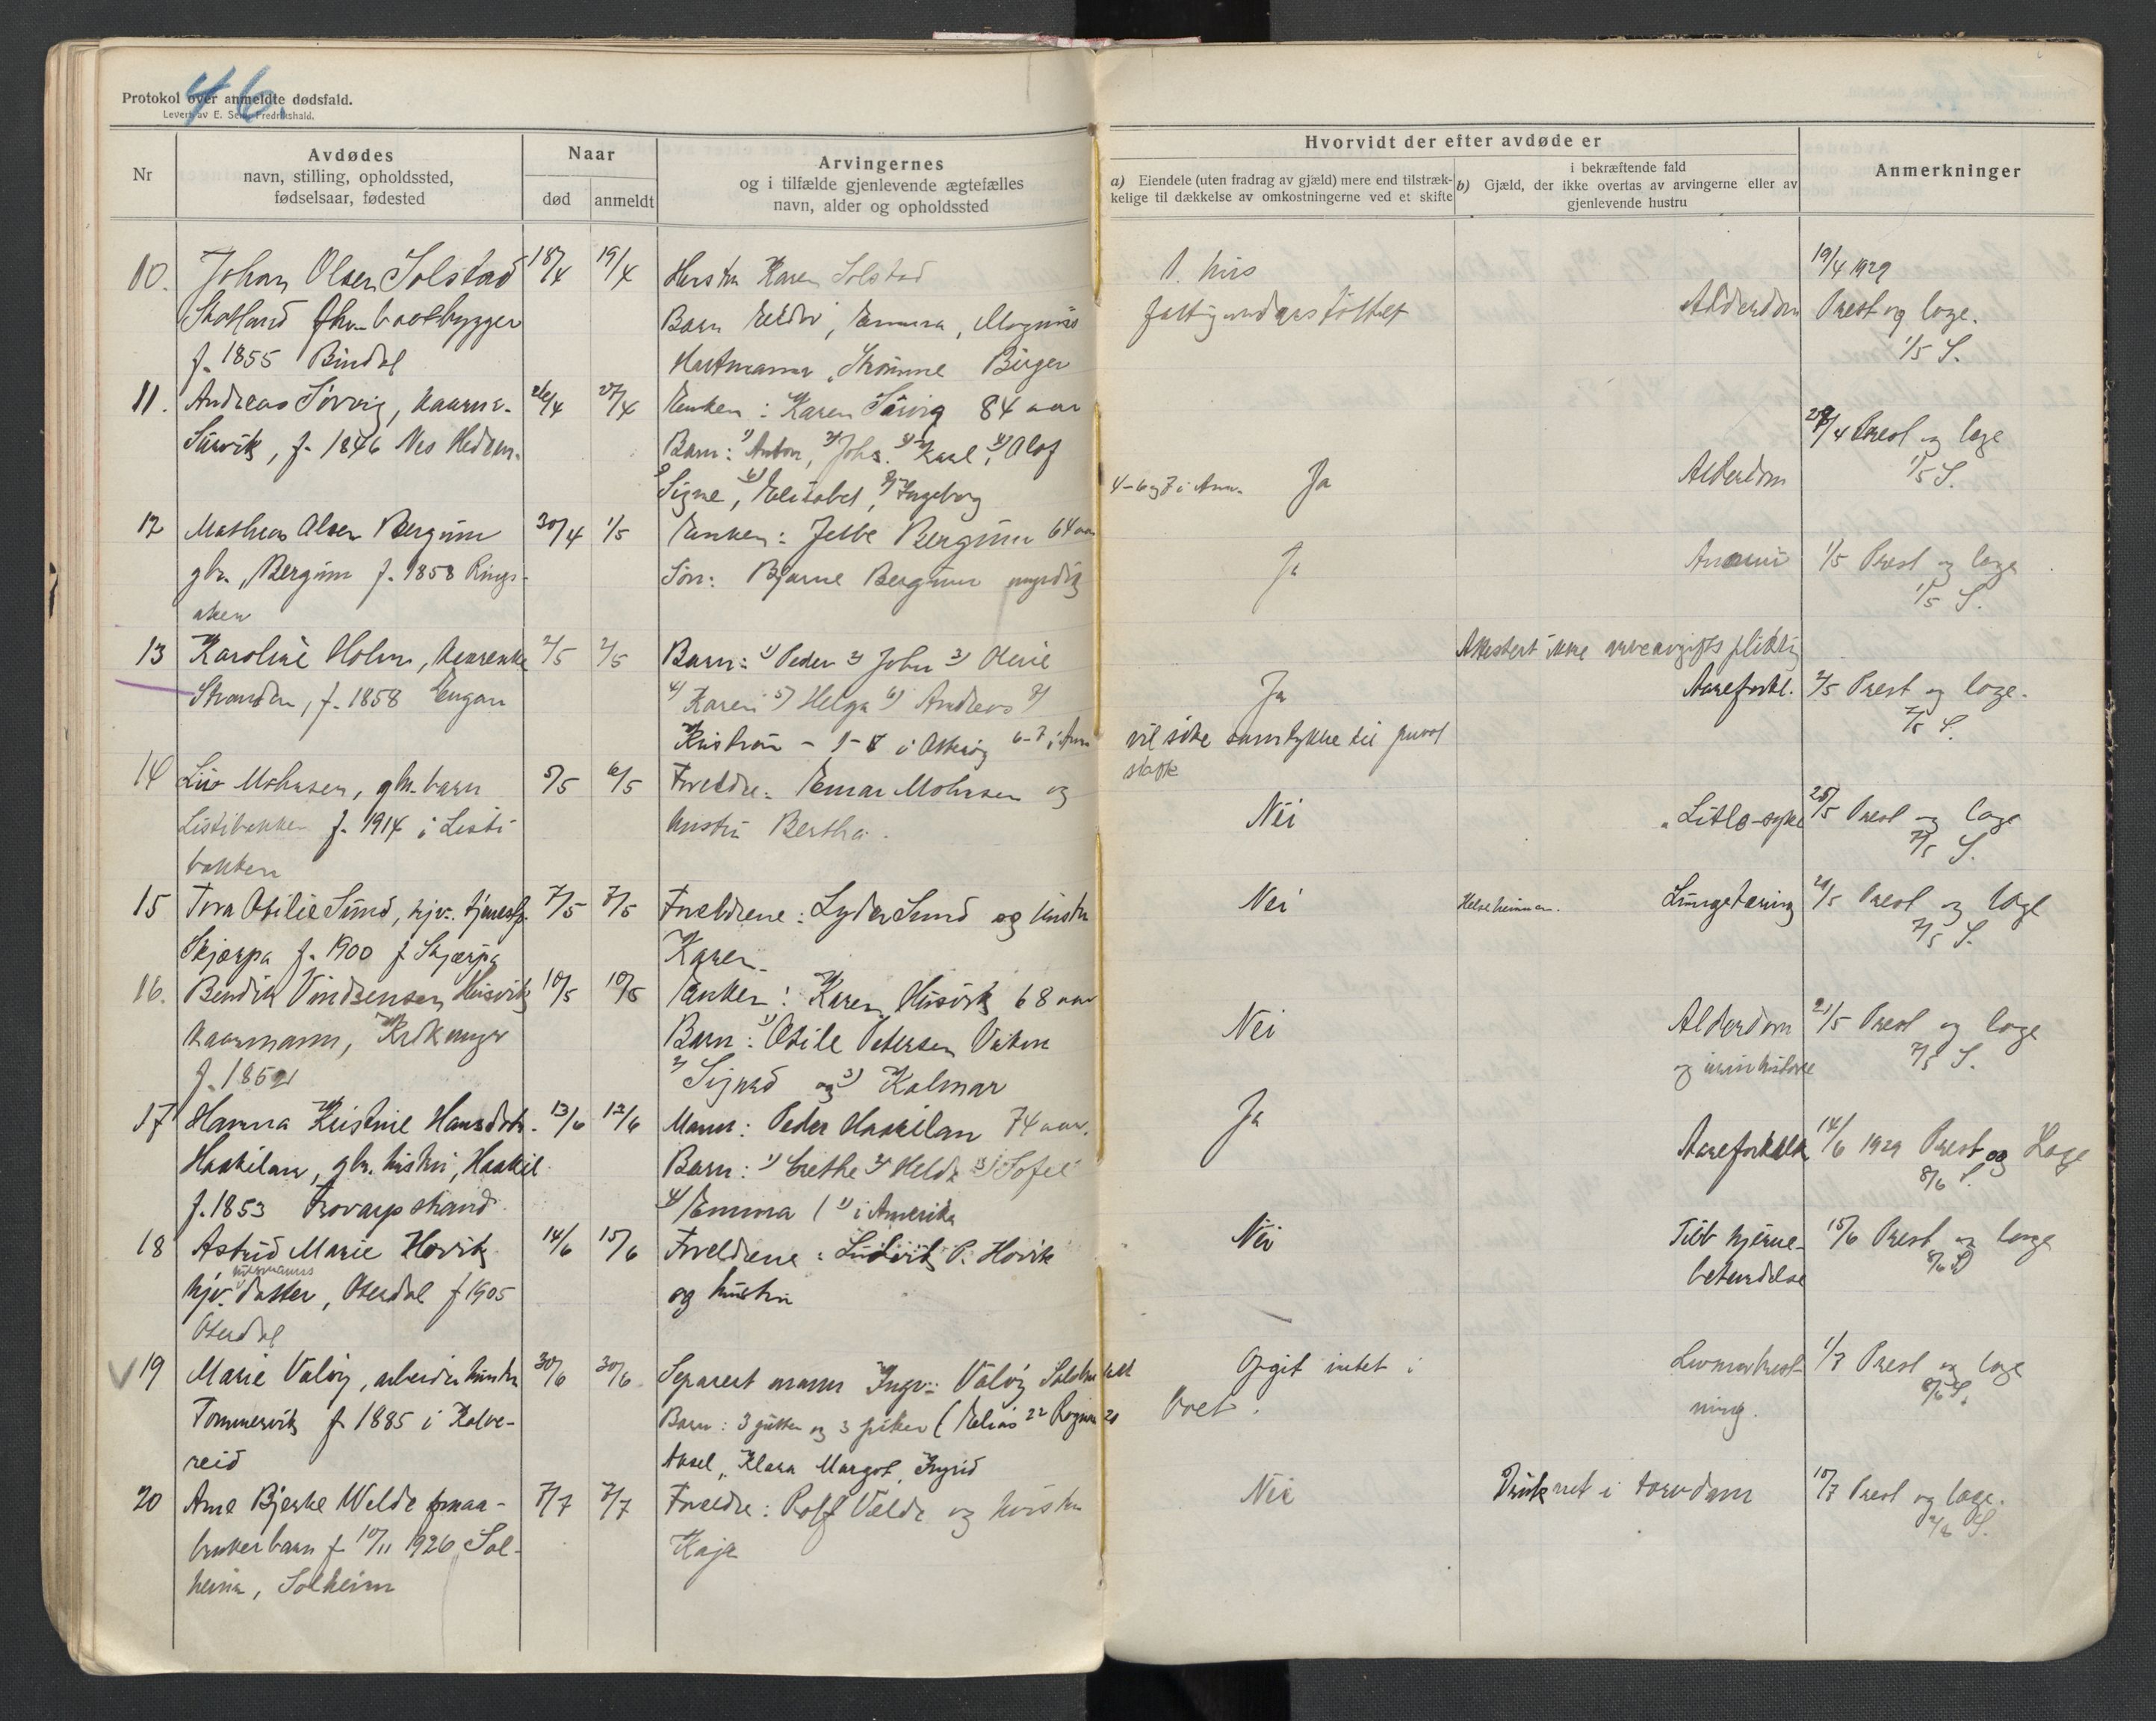 46.
Protokol over anmeldte dødsfald.
Levert av E. Sem, Fredrikshald.
Nr
Avdødes
navn, stilling, opholdssted,
fødselsaar, fødested
Naar
død
anmeldt
Arvingernes
og i tilfælde gjenlevende ægtefælles
navn, alder og opholdssted
Hvorvidt der efter avdøde er
a) Eiendele (uten fradrag av gjæld) mere end tilstræk-
kelige til dækkelse av omkostningerne ved et skifte
i bekræftende fald
b) Gjæld, der ikke overtas av arvingerne eller av
gjenlevende hustru
Anmerkninger
10. Johan Olsen Solstad 18/4 19/4 Hustru Karen Solstad 1. hus 19/4 1929
fhv. baatbygger Barn Emma, Magnus fattigunderstøttet Alderdom Prest og loge.
f. 1855 Bindal Hartmann, Birger 1/5 S.
11. Andreas Sørvig, kaarm. 26/4 27/4 Enken: Karen Sørvig 84 aar
Sørvik, f. 1846 Nes Hedem. Barn: 1) Anton, 2) Johs. 3) Karl, 4) Olaf 27/4 Prest og loge
5) Signe, 6) Elisabet, 7) Ingeborg 4-6 og 7 i Am. Ja Alderdom 1/5 S.
12 Mathias Olsen Bergum 30/4 1/5 Enken: Bergum 64 aar
gbr., Bergum f. 1858 Rings- Søn: Bjarne Bergum myndig Ja Anæmi 1/5 Prest og loge
aker 1/5 S.
13 Karoline Holm, kaarenke 2/5 2/5 Barn: 1) Peder 2) Johs 3) Attestert ikke arveavgifts pliktig
Stranden, f. 1858 Engan 4) Karen 5) Helga 6) Andreas 7) Ja Aareforkl. 2/5 Prest og loge.
Kristian 6-7 i Am vil søke samtykke til privat 7/5 S.
skifte
14 Liv Mohnsen, gbr. barn 5/5 6/5 Foreldre: Einar Mohnsen og
Listibakken f. 1914 i Listi- hustru Bertha. Nei 25/5 Prest og loge
bakken 7/5 S.
15 Tora Otilie Sund, 7/5 7/5 Foreldrene: Lyder Sund og hustru Nei Helseheimen. Lungetæring 20/5 Prest og loge
Skjærpa f. 1900 f Skjærpa Karen. 7/5 S.
16. Bendik Vindsensen Husvik 10/5 10/5 Enken: Karen Husvik 68 aar
kaarmann, f. 1852 Barn: 1) Otile Petersen Nei Alderdom 21/5 Prest og loge
2) Sigurd og 3) Kalmar 7/5 S.
17 Hanna Kristine Hansdtr. 13/6 13/6 Mann: Peder Haakilan 74 aar. Ja
Haakilan, gbr. hustru, Haakil. Barn: 1) Grethe 2) Helda 3) Sofel Aareforkalk 14/6 1929 Prest og Loge
f. 1853 4) Emma (1) i Amerika 8/6 S.
18 Astrid Marie Hovik 14/6 15/6 Foreldrene: Ludvik P. Hovik Nei Tilb hjerne- 15/6 Prest og loge
datter, Oterdal f 1905 og hustru betendelse 8/6 S
Oterdal
19 Marie Valøy, arbeider hustru 30/6 30/6 Separert mann Ingv. Valøy Opgit intet i 1/7 Prest og loge
Tommervik f 1885 i Kolve- Barn: 3 gutter og 3 piker (Elias 22 Ragna 20 boet. ning.
reid Aksel, Klara Margot, Ingrid
20 Arne Bjerke Welde smaa- 7/7 7/7 Foreldre: Rolf Welde og hustru Nei Druknet i torvdam 10/7 Prest og loge.
brukerbarn f 10/11 1926 Sol- Kaja
heim, Solheim